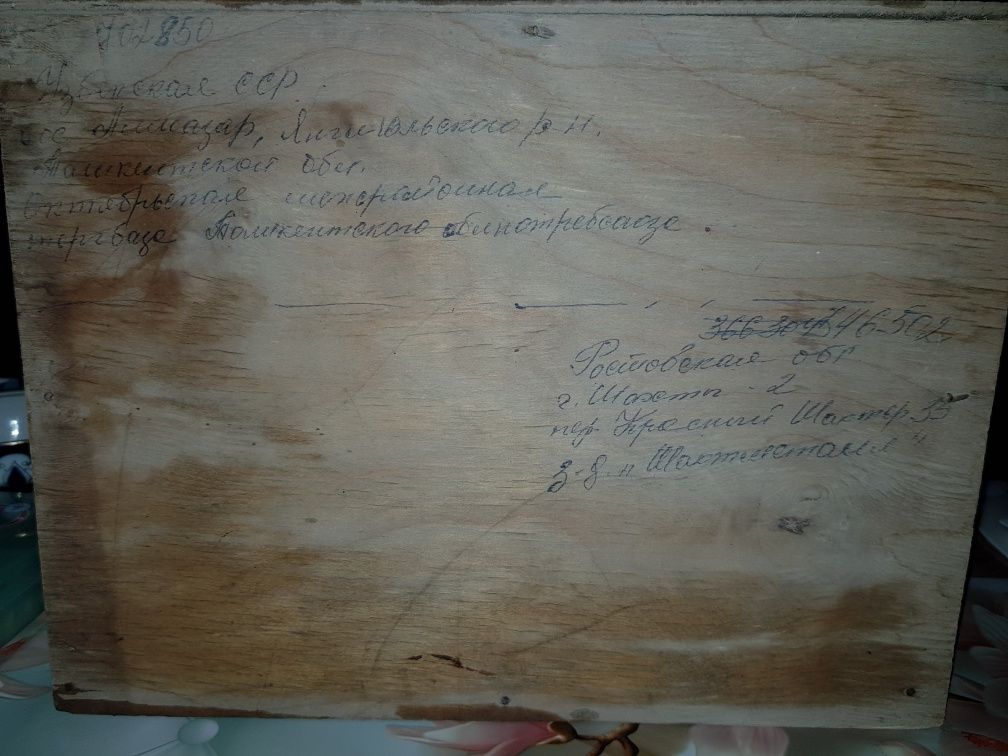 702850
Узбекская ССР
пос Алмазар, Янгиюльского р-н.
Ташкентской обл.
Октябрьская межрайонная
торгбаза Ташкентского облпотребсоюза.
346-502
Ростовская обл
г. Шахты - 2
пер Красный Шахтер 35
з-д "Шахтметалл"